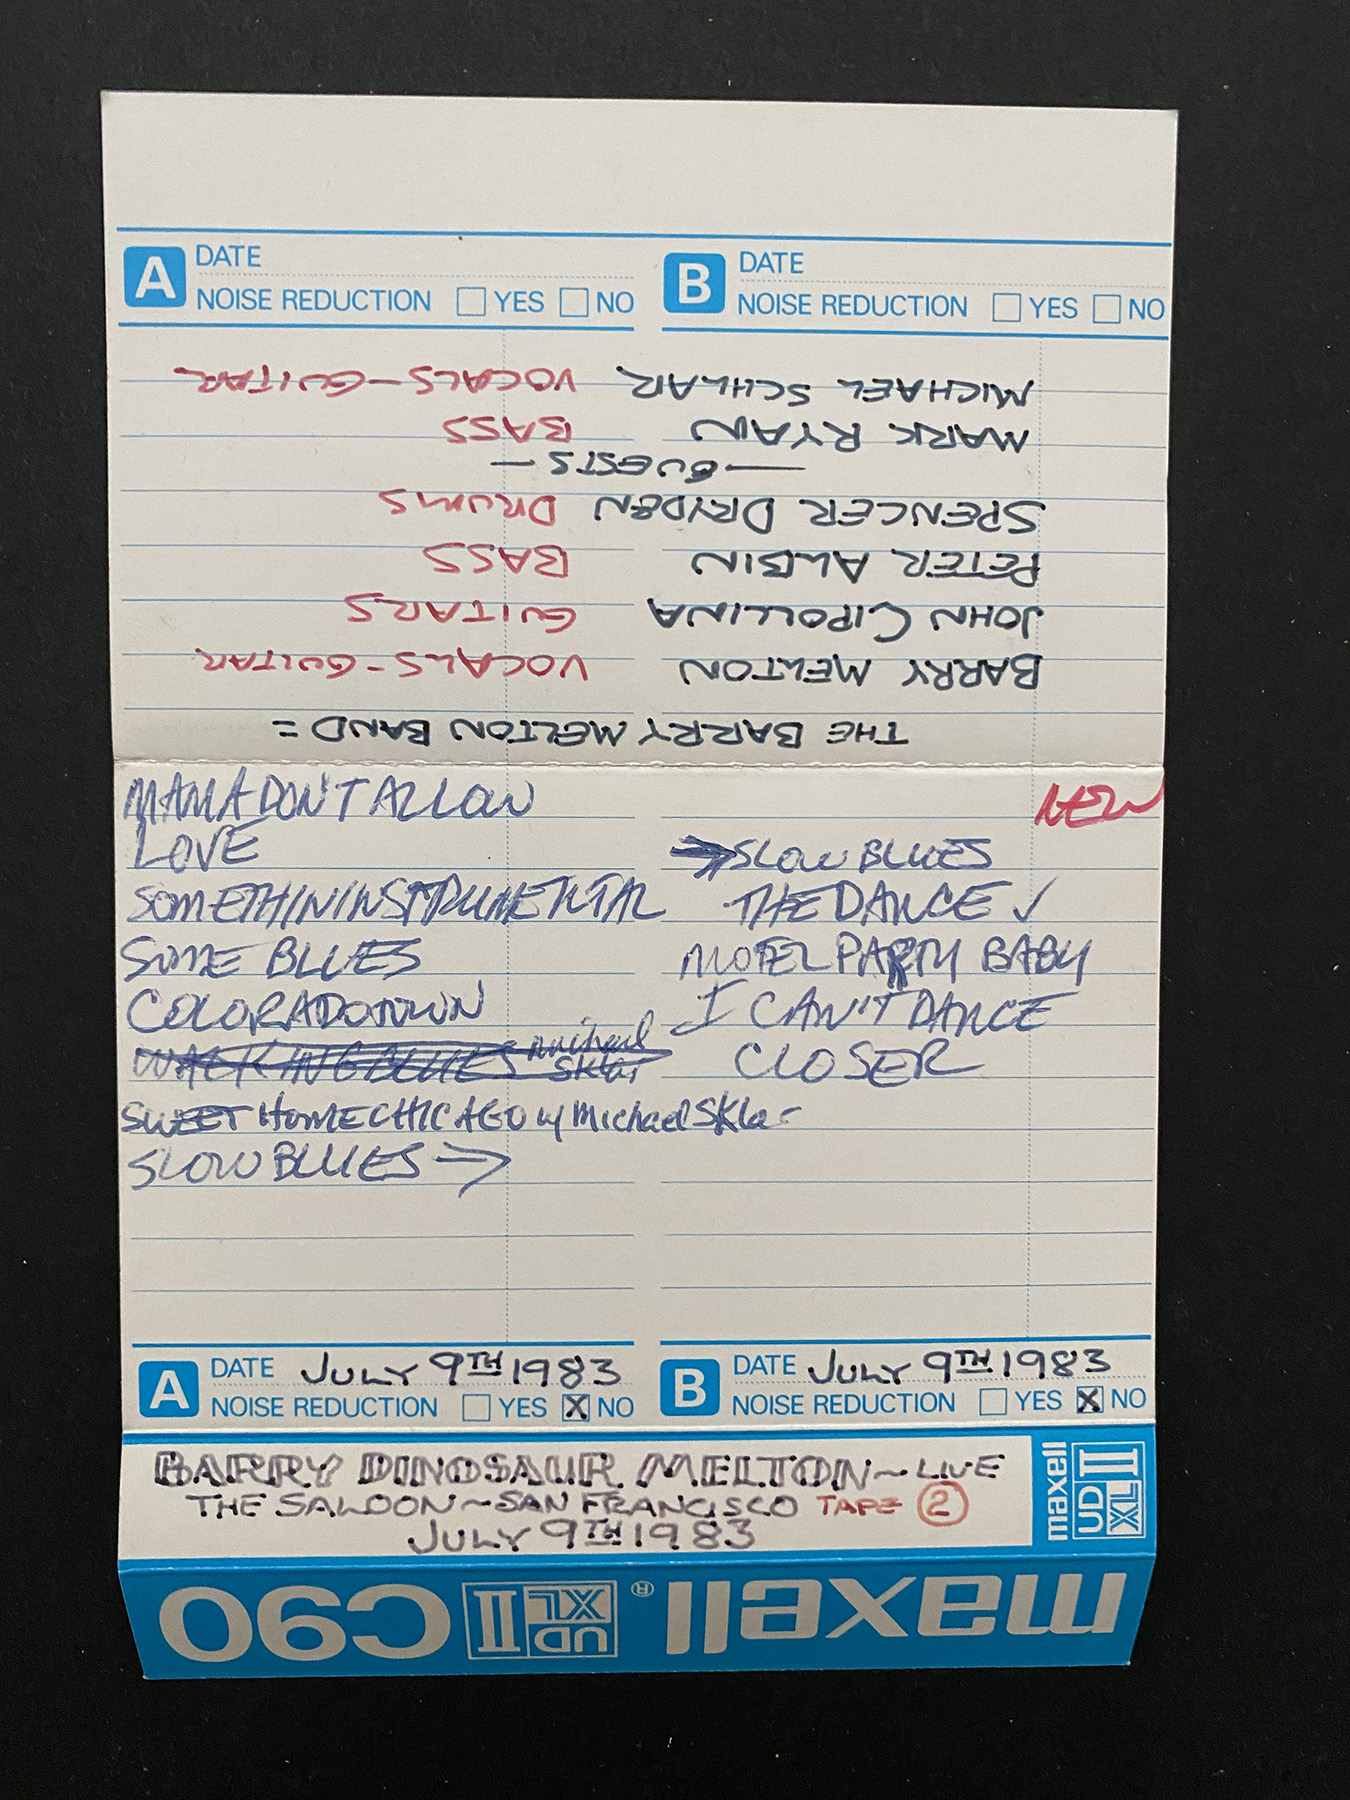 A DATE
NOISE REDUCTION YES NO
B DATE
NOISE REDUCTION YES NO
THE BARRY MELTON BAND =
BARRY MELTON VOCALS-GUITAR
JOHN CIPOLLINA GUITARS
PETER ALBIN BASS
SPENCER DRYDEN DRUMS
— GUESTS —
MARK RYAN BASS
MICHAEL SCHLAR VOCALS-GUITAR
MAMA DON'T ALLOW
LOVE
SOMETHIN INSTRUMENTAL
SOME BLUES
COLORADO TOWN
WALKING BLUES michael Sklar
SWEET HOME CHICAGO w/ Michael Sklar
SLOW BLUES →
NEW
→ SLOW BLUES
THE DANCE ✓
MOTEL PARTY BABY
I CAN'T DANCE
CLOSER
A DATE JULY 9TH 1983
NOISE REDUCTION YES X NO
B DATE JULY 9TH 1983
NOISE REDUCTION YES X NO
BARRY DINOSAUR MELTON ~ LIVE
THE SALOON ~ SAN FRANCISCO TAPE 2
JULY 9TH 1983
maxell UDXLII
maxell® UDXLII C90